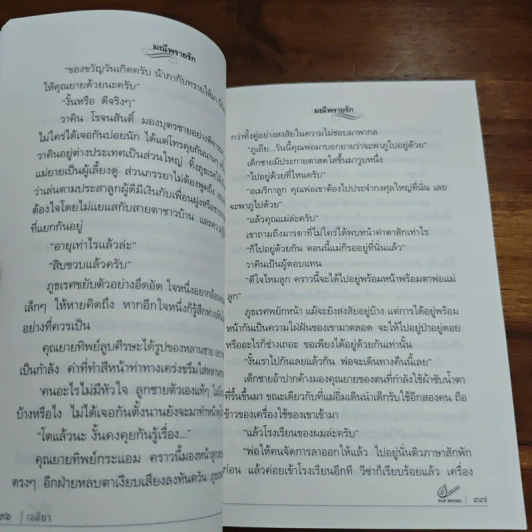 มณีพรายรัก
"ของขวัญวันเกิดครับ น้าภากับทรายให้ผม
ให้คุณยายด้วยนะครับ"
"งั้นหรือ ดีจริงๆ"
วาคิน โรจนสันติ์ มองบุตรชายอย่าง
ไม่ใคร่ได้เจอกันบ่อยนัก ได้แต่โทรคุยกันนานๆ
วาคินอยู่ต่างประเทศเป็นส่วนใหญ่ ทิ้งภูธเรศ
แม่ยายเป็นผู้เลี้ยงดู ส่วนภรรยาไม่ต้องพูดถึง
ว่าเล่นตามประสาลูกผู้ดีมีเงินกับเพื่อนฝูง
ต้องใจโดยไม่แยแสกับสายตาชาวบ้าน และ
ที่แยกกันอยู่
"อายุเท่าไรแล้วล่ะ"
"สิบขวบแล้วครับ"
ภูธเรศขยับตัวอย่างอึดอัด ใจหนึ่งอยาก
เล็กๆ ให้หายคิดถึง หากอีกใจหนึ่งก็รู้สึก
อย่างที่ควรเป็น
คุณยายทิพย์ลูบศีรษะได้รูปของหลานชาย
เป็นกำลัง ค่าที่ทำสีหน้าท่าทางเคร่งขรึม
'คนอะไรไม่มีหัวใจ ลูกชายตัวเองแท้ๆ
บ้างหรือไง ไม่ได้เจอกันตั้งนานยังจะมาทำ
"โตแล้วนะ งั้นคงคุยกันรู้เรื่อง..."
คุณยายทิพย์กระแอม คราวนี้มองหน้า
ตรงๆ อีกฝ่ายหลบตาเงียบเสียงลงทันควัน
๓๖ เจสิยา
มณีพรายรัก
กว่าทั้งคู่อย่างสงสัยในความไม่ชอบมาพากล
"ภูเอ๊ย...วันนี้คุณพ่อมาบอกยายว่าจะพาภูไปอยู่ด้วย"
เด็กชายมีประกายตาสดใสขึ้นมาวูบหนึ่ง
"ไปอยู่ด้วยที่ไหนครับ"
"อเมริกาลูก คุณพ่อเขาต้องไปประจำกงศุลใหญ่ที่นั่น เลย
จะพาภูไปด้วย"
"แล้วคุณแม่ล่ะครับ"
เขาถามถึงมารดาที่ไม่ใคร่ได้พบหน้าค่าตาสักเท่าไร
"ก็ไปอยู่ด้วยกัน ตอนนี้แม่ก็รออยู่ที่นั่นแล้ว"
วาคินเป็นผู้ตอบแทน
"ดีใจไหมลูก คราวนี้จะได้ไปอยู่พร้อมหน้าพร้อมตาพ่อแม่
ลูก"
ภูธเรศพยักหน้า แม้จะยังสงสัยอยู่บ้าง แต่การได้อยู่พร้อม
หน้ากันเป็นความใฝ่ฝันของเขามาตลอด จะให้ไปอยู่ป่าอยู่ดอย
หรืออะไรก็ช่างเถอะ ขอเพียงได้อยู่ด้วยกันเท่านั้น
"งั้นเราไปกันเลยแล้วกัน พ่อจะเดินทางคืนนี้เลย"
เด็กชายอ้าปากค้างมองคุณยายของตนที่กำลังใช้ผ้าซับน้ำตา
ที่รื้นขึ้นมา ขณะเดียวกันที่แม่อิ่มเดินนำเด็กรับใช้อีกสองคน ถือ
ข้าวของเครื่องใช้ของเขาเข้ามา
"แล้วโรงเรียนของผมล่ะครับ"
"พ่อให้คนจัดการลาออกให้แล้ว ไปอยู่นั่นติวภาษาสักพัก
ก่อน แล้วค่อยเข้าโรงเรียนอีกที วีซ่าก็เรียบร้อยแล้ว เครื่อง
๓๗